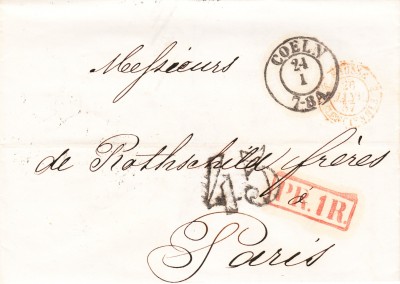 COELN
24
1
7-8A.
Messieurs
de Rothschild frères
45
PR. 1 R.
à
Paris